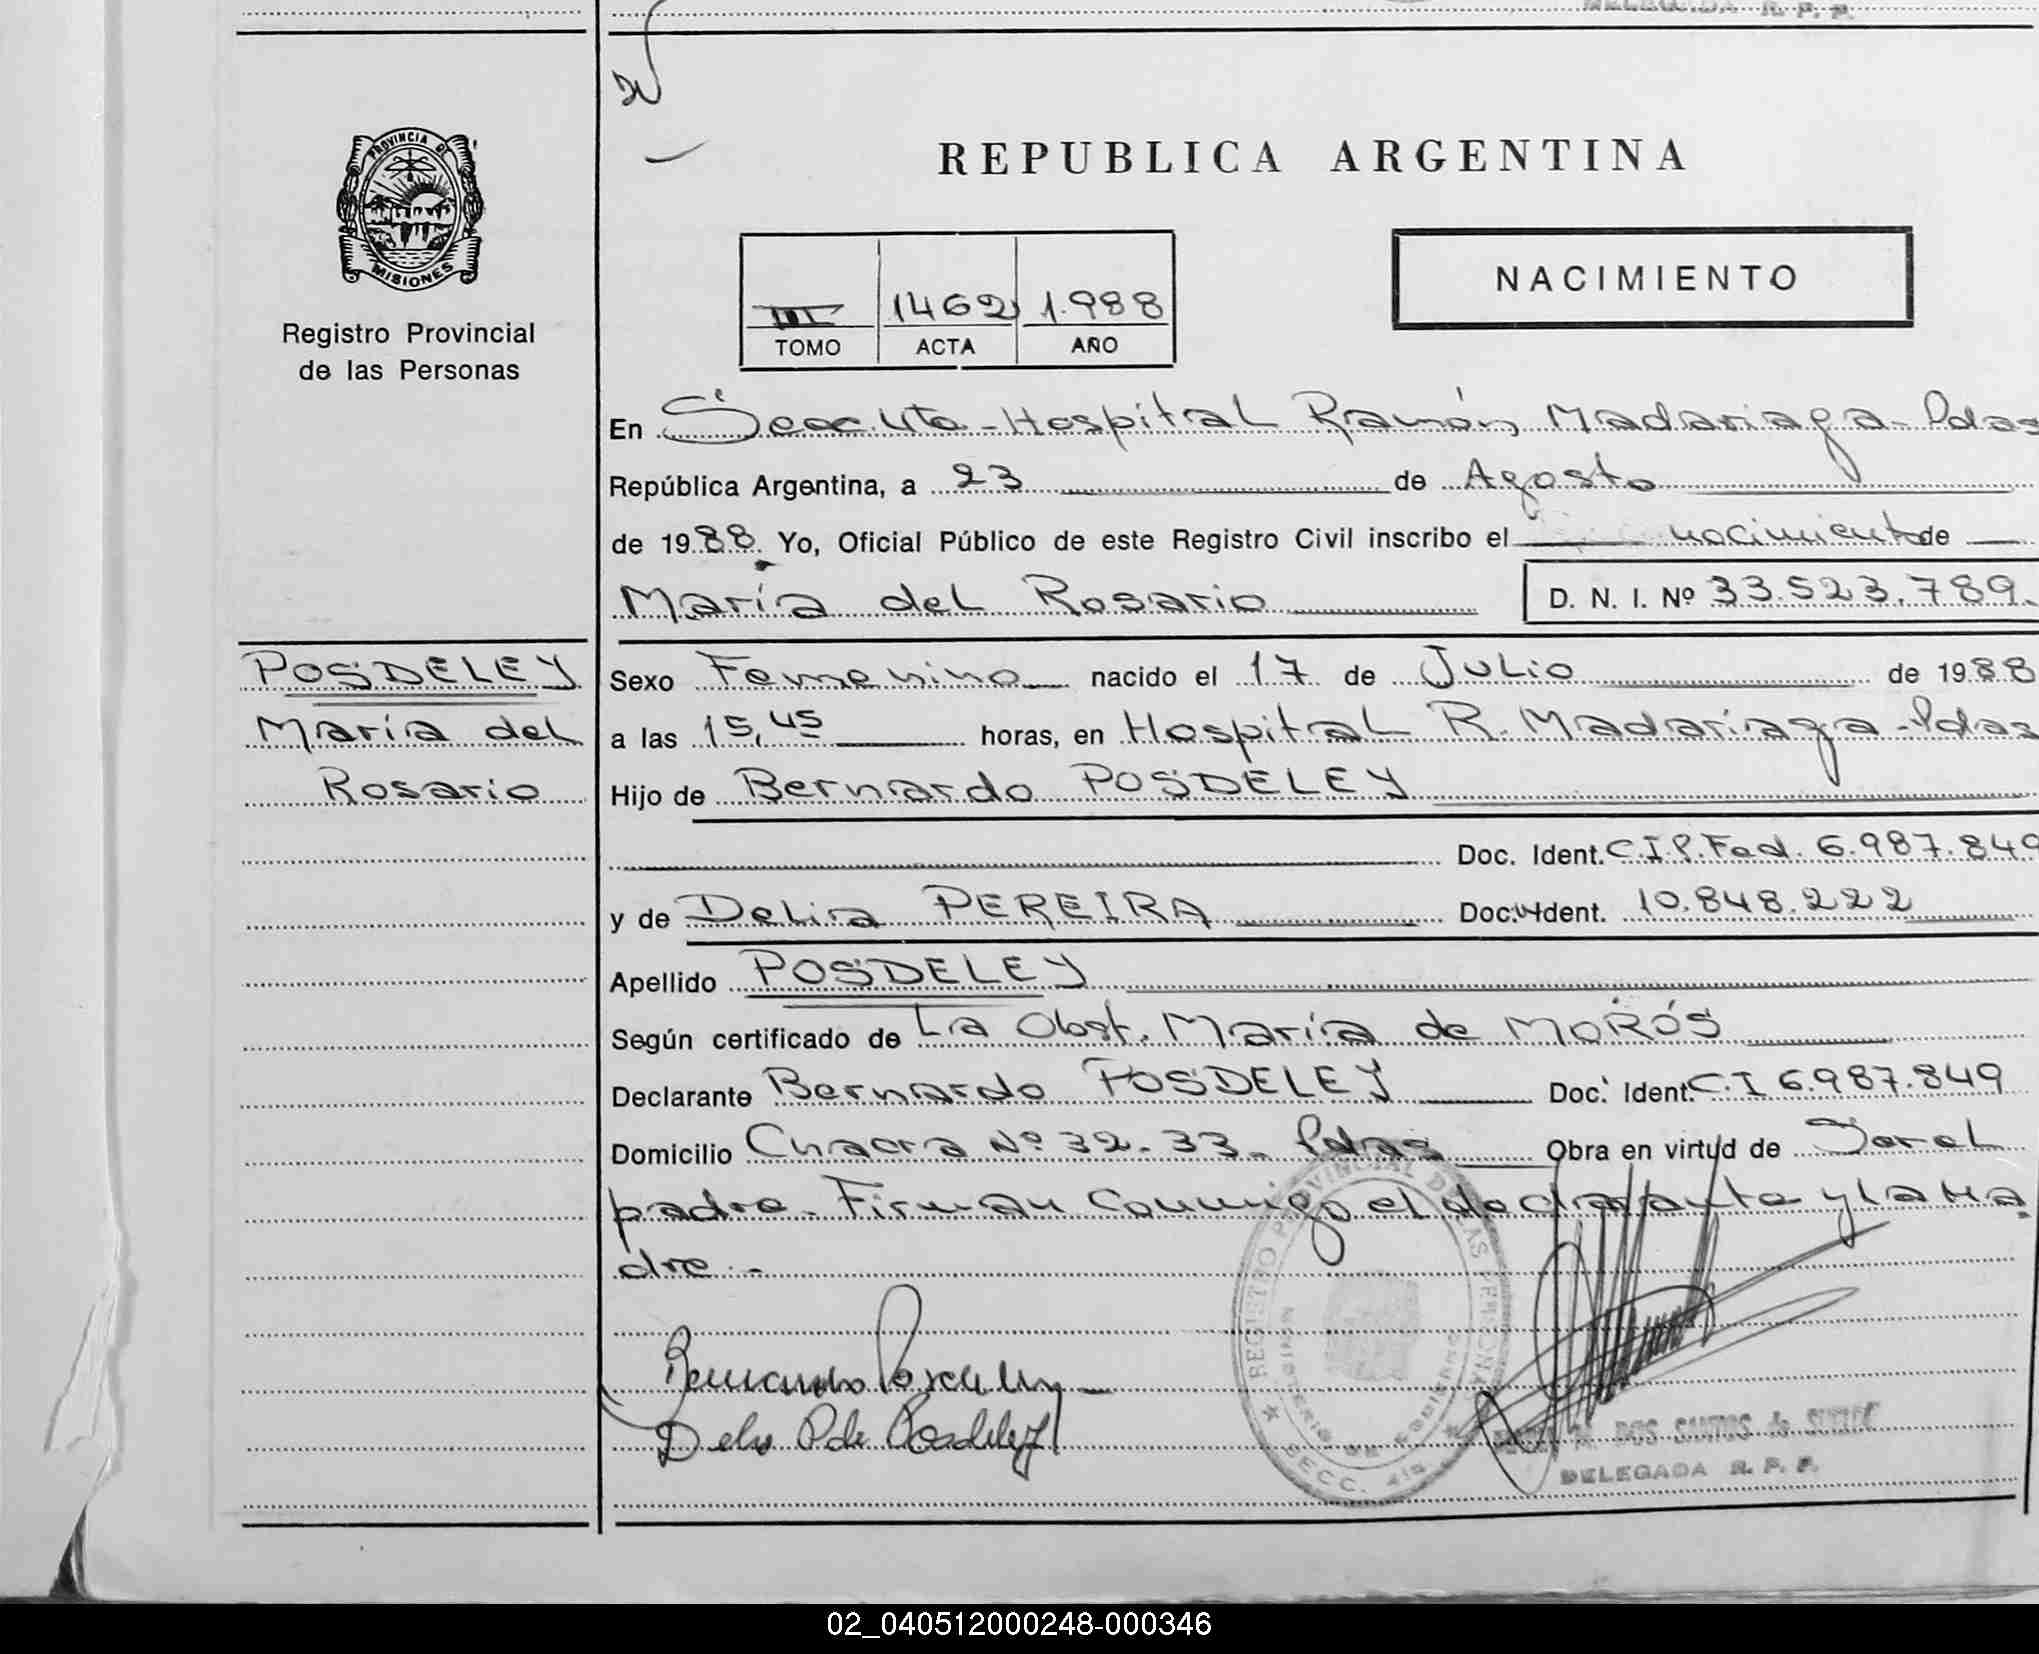 DELEGADA R. P. P.
PROVINCIA DE
MISIONES
Registro Provincial
de las Personas
REPUBLICA ARGENTINA
NACIMIENTO
III 1462 1.988
TOMO ACTA AÑO
En Secc. 4ta - Hospital Ramón Madariaga - Pdas
República Argentina, a 23 de Agosto
de 1988. Yo, Oficial Público de este Registro Civil inscribo el nacimiento de
María del Rosario D. N. I. Nº 33.523.789.
POSDELEY
María del
Rosario
Sexo Femenino nacido el 17 de Julio de 1988
a las 15,45 horas, en Hospital R. Madariaga - Pdas
Hijo de Bernardo POSDELEY
Doc. Ident. C.I.P.Fed. 6.987.849
y de Delia PEREIRA Doc. Ident. 10.848.222
Apellido POSDELEY
Según certificado de La Obst. María de MORÓS
Declarante Bernardo POSDELEY Doc. Ident. C.I 6.987.849
Domicilio Chacra Nº 32-33- Pdas Obra en virtud de Ser el
padre - Firman conmigo el declarante y la Ma
dre.-
Bernardo Posdeley
Delia P de Posdeley
REGISTRO PROVINCIAL DE LAS PERSONAS
SECC. 4ta
DOS SANTOS de
DELEGADA R. P. P.
02_040512000248-000346